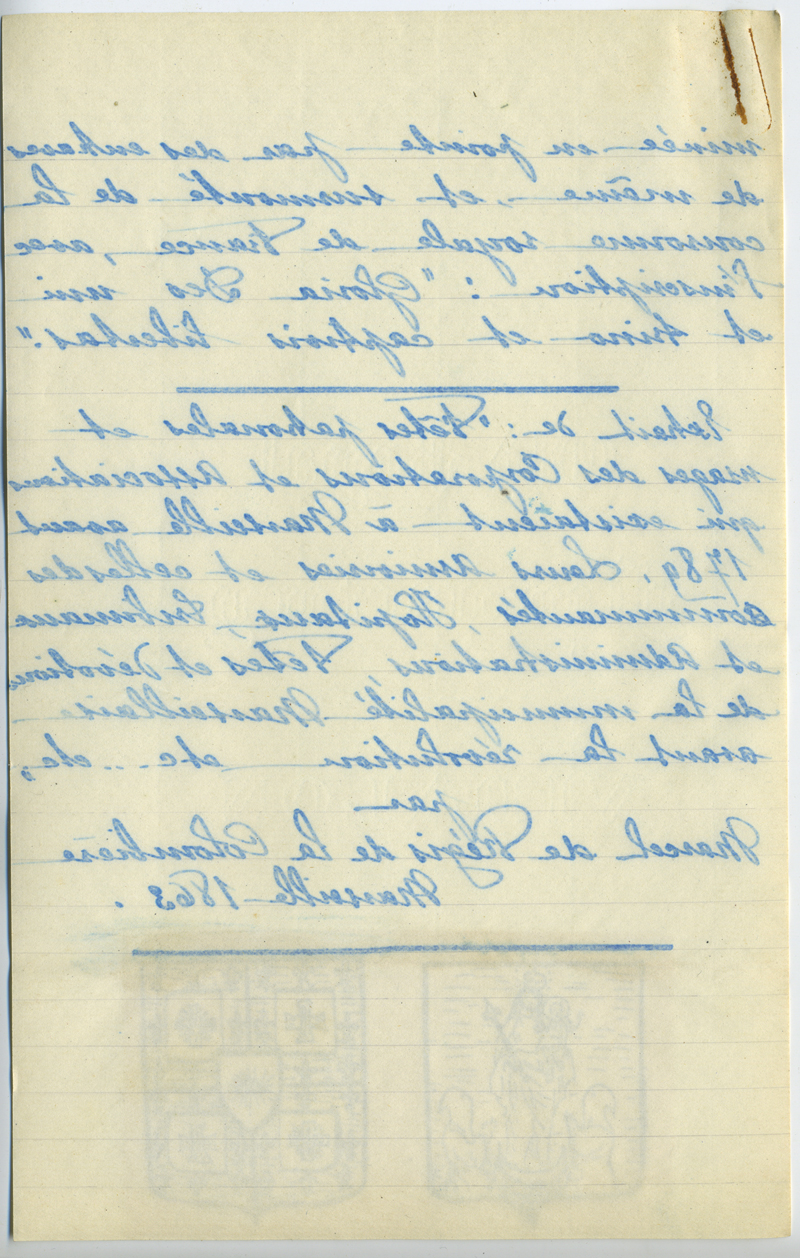 minée en pointe par des entraves
de même et, surmonté de la
couronne royale de France, avec
l'inscription : "Gloria Deo uni
et trino et captivis libertas".
Extrait de : "Fêtes patronales et
usages des Corporations et Associations
qui existaient à Marseille avant
1789. Leurs armoiries et celles des
communautés, Hôpitaux, Tribunaux
et Administrations, Fêtes et dévotions
de la municipalité Marseillaise
avant la révolution etc... etc,
par
Marcel de Régis de la Colombière
Marseille 1863.